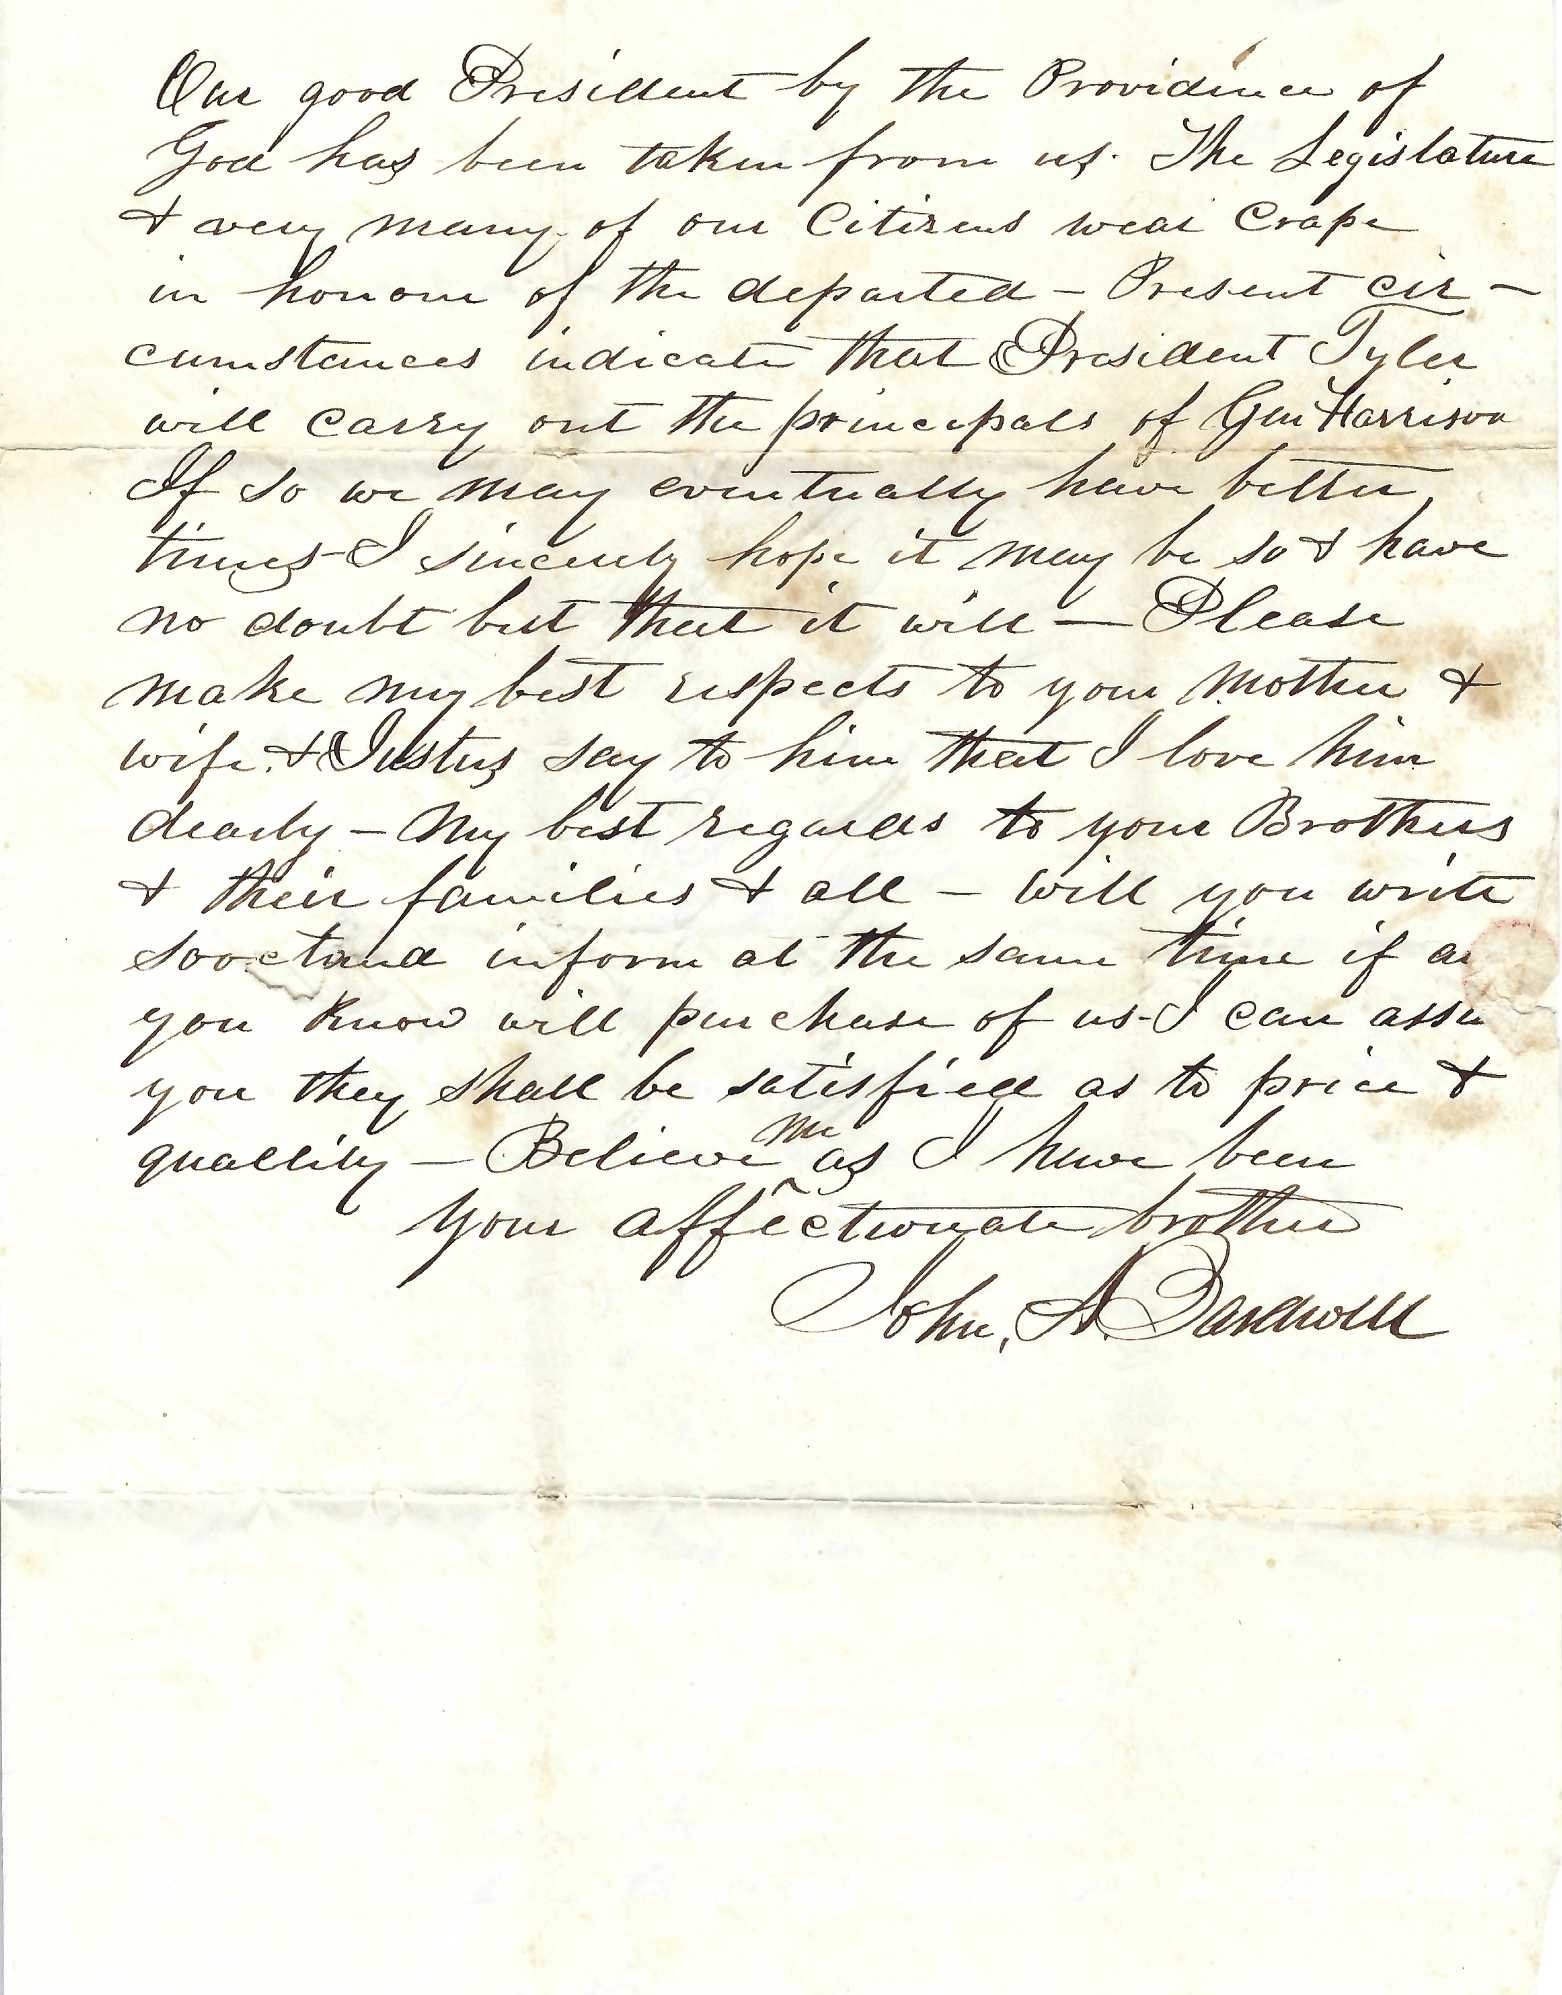 Our good President by the Providence of
God has been taken from us. The Legislature
& very many of our Citizens wear Crape
in honour of the departed – Present cir–
cumstances indicate that President Tyler
will carry out the principals of Gen Harrison
If so we may eventually have better
times – I sincerely hope it may be so & have
no doubt but that it will – Please
make my best respects to your Mother &
wife. & Justus say to him that I love him
dearly – My best regards to your Brothers
& their families & all – Will you write
and inform at the same time if
you know will purchase of us – I can assu
you they shall be satisfied as to price &
quallity – Believe me as I have been
Your affectionate brother
John. A.